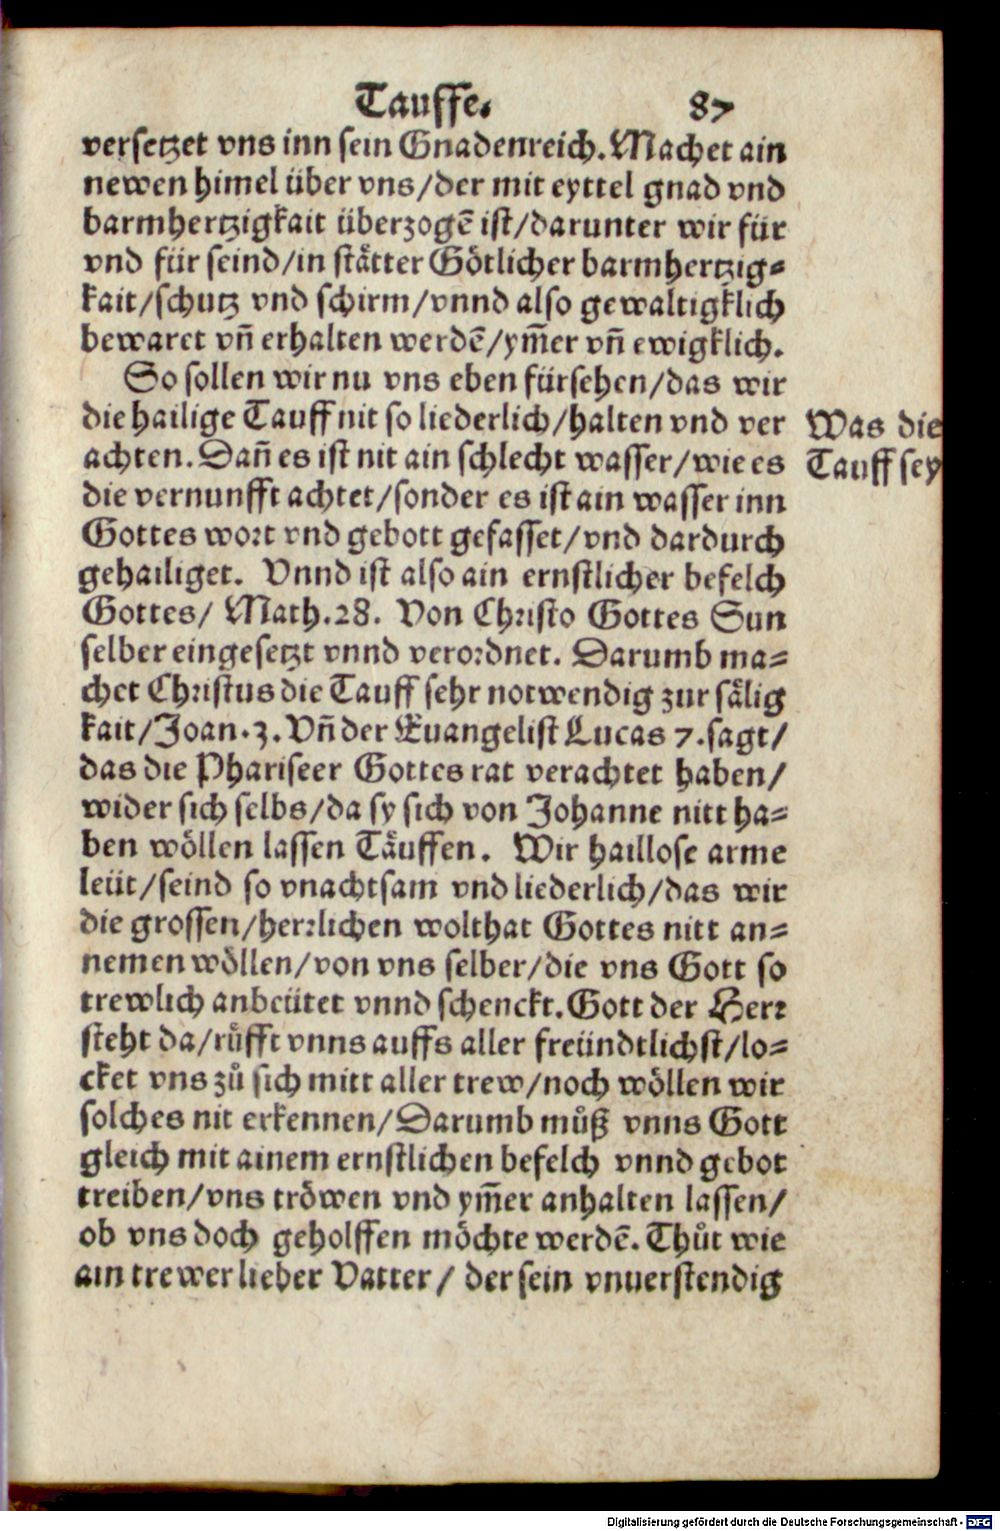 Tauffe. 87
versetzet vns inn sein Gnadenreich. Machet ain
newen himel über vns/der mit eyttel gnad vnd
barmhertzigkait überzogē ist/darunter wir für
vnd für seind/in stätter Götlicher barmhertzig=
kait/schutz vnd schirm/vnnd also gewaltigklich
bewaret vñ erhalten werdē/ym̃er vñ ewigklich.
So sollen wir nu vns eben fürsehen/das wir
die hailige Tauff nit so liederlich/halten vnd ver
achten. Dañ es ist nit ain schlecht wasser/wie es
Was die
Tauff sey
die vernunfft achtet/sonder es ist ain wasser inn
Gottes wort vnd gebott gefasset/vnd dardurch
gehailiget. Vnnd ist also ain ernstlicher befelch
Gottes/ Math.28. Von Christo Gottes Sun
selber eingesetzt vnnd verordnet. Darumb ma=
chet Christus die Tauff sehr notwendig zur sälig
kait/Joan.3. Vñ der Euangelist Lucas 7. sagt/
das die Phariseer Gottes rat verachtet haben/
wider sich selbs/da sy sich von Johanne nitt ha=
ben wöllen lassen Täuffen. Wir haillose arme
leüt/seind so vnachtsam vnd liederlich/das wir
die grossen/herrlichen wolthat Gottes nitt an=
nemen wöllen/von vns selber/die vns Gott so
trewlich anbeütet vnnd schenckt. Gott der Herr
steht da/růfft vnns auffs aller freündtlichst/lo=
cket vns zů sich mitt aller trew/noch wöllen wir
solches nit erkennen/Darumb můß vnns Gott
gleich mit ainem ernstlichen befelch vnnd gebot
treiben/vns tröwen vnd ym̃er anhalten lassen/
ob vns doch geholffen möchte werdē. Thůt wie
ain trewer lieber Vatter/ der sein vnuerstendig
Digitalisierung gefördert durch die Deutsche Forschungsgemeinschaft - DFG